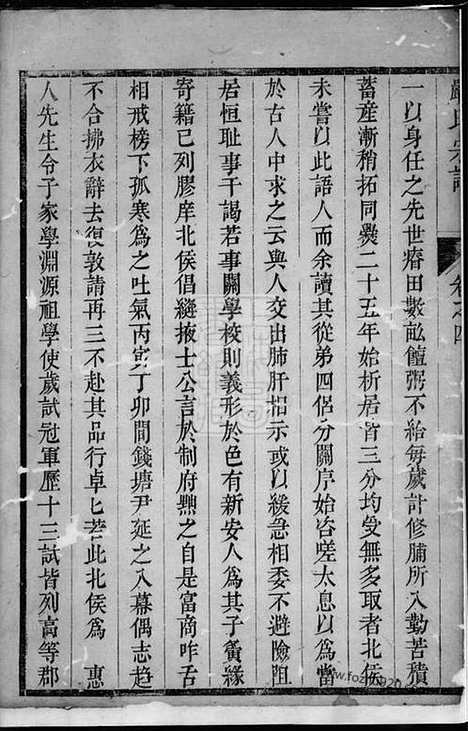 嚴氏宗譜
卷之四
一以身任之先世瘠田數畝饘粥不給每歲計修脯所入勤苦積
蓄產漸稍拓同爨二十五年始析居皆三分均受無多取者北侯
未嘗以此語人而余讀其從弟四侶分關序始咨嗟太息以爲當
於古人中求之云與人交出肺肝相示或以緩急相委不避險阻
居恒恥事干謁若事關學校則義形於色有新安人爲其子夤緣
寄籍已列膠庠北侯倡縫掖士公言於制府黜之自是富商咋舌
相戒榜下孤寒爲之吐氣丙寅丁卯間錢塘尹延之入幕偶志趋
不合拂衣辭去復敦請再三不赴其品行卓匕若此北侯爲 惠
人先生令子家學淵源祖學使歲試冠軍歷十三試皆列高等郡
www.fozhu920.com